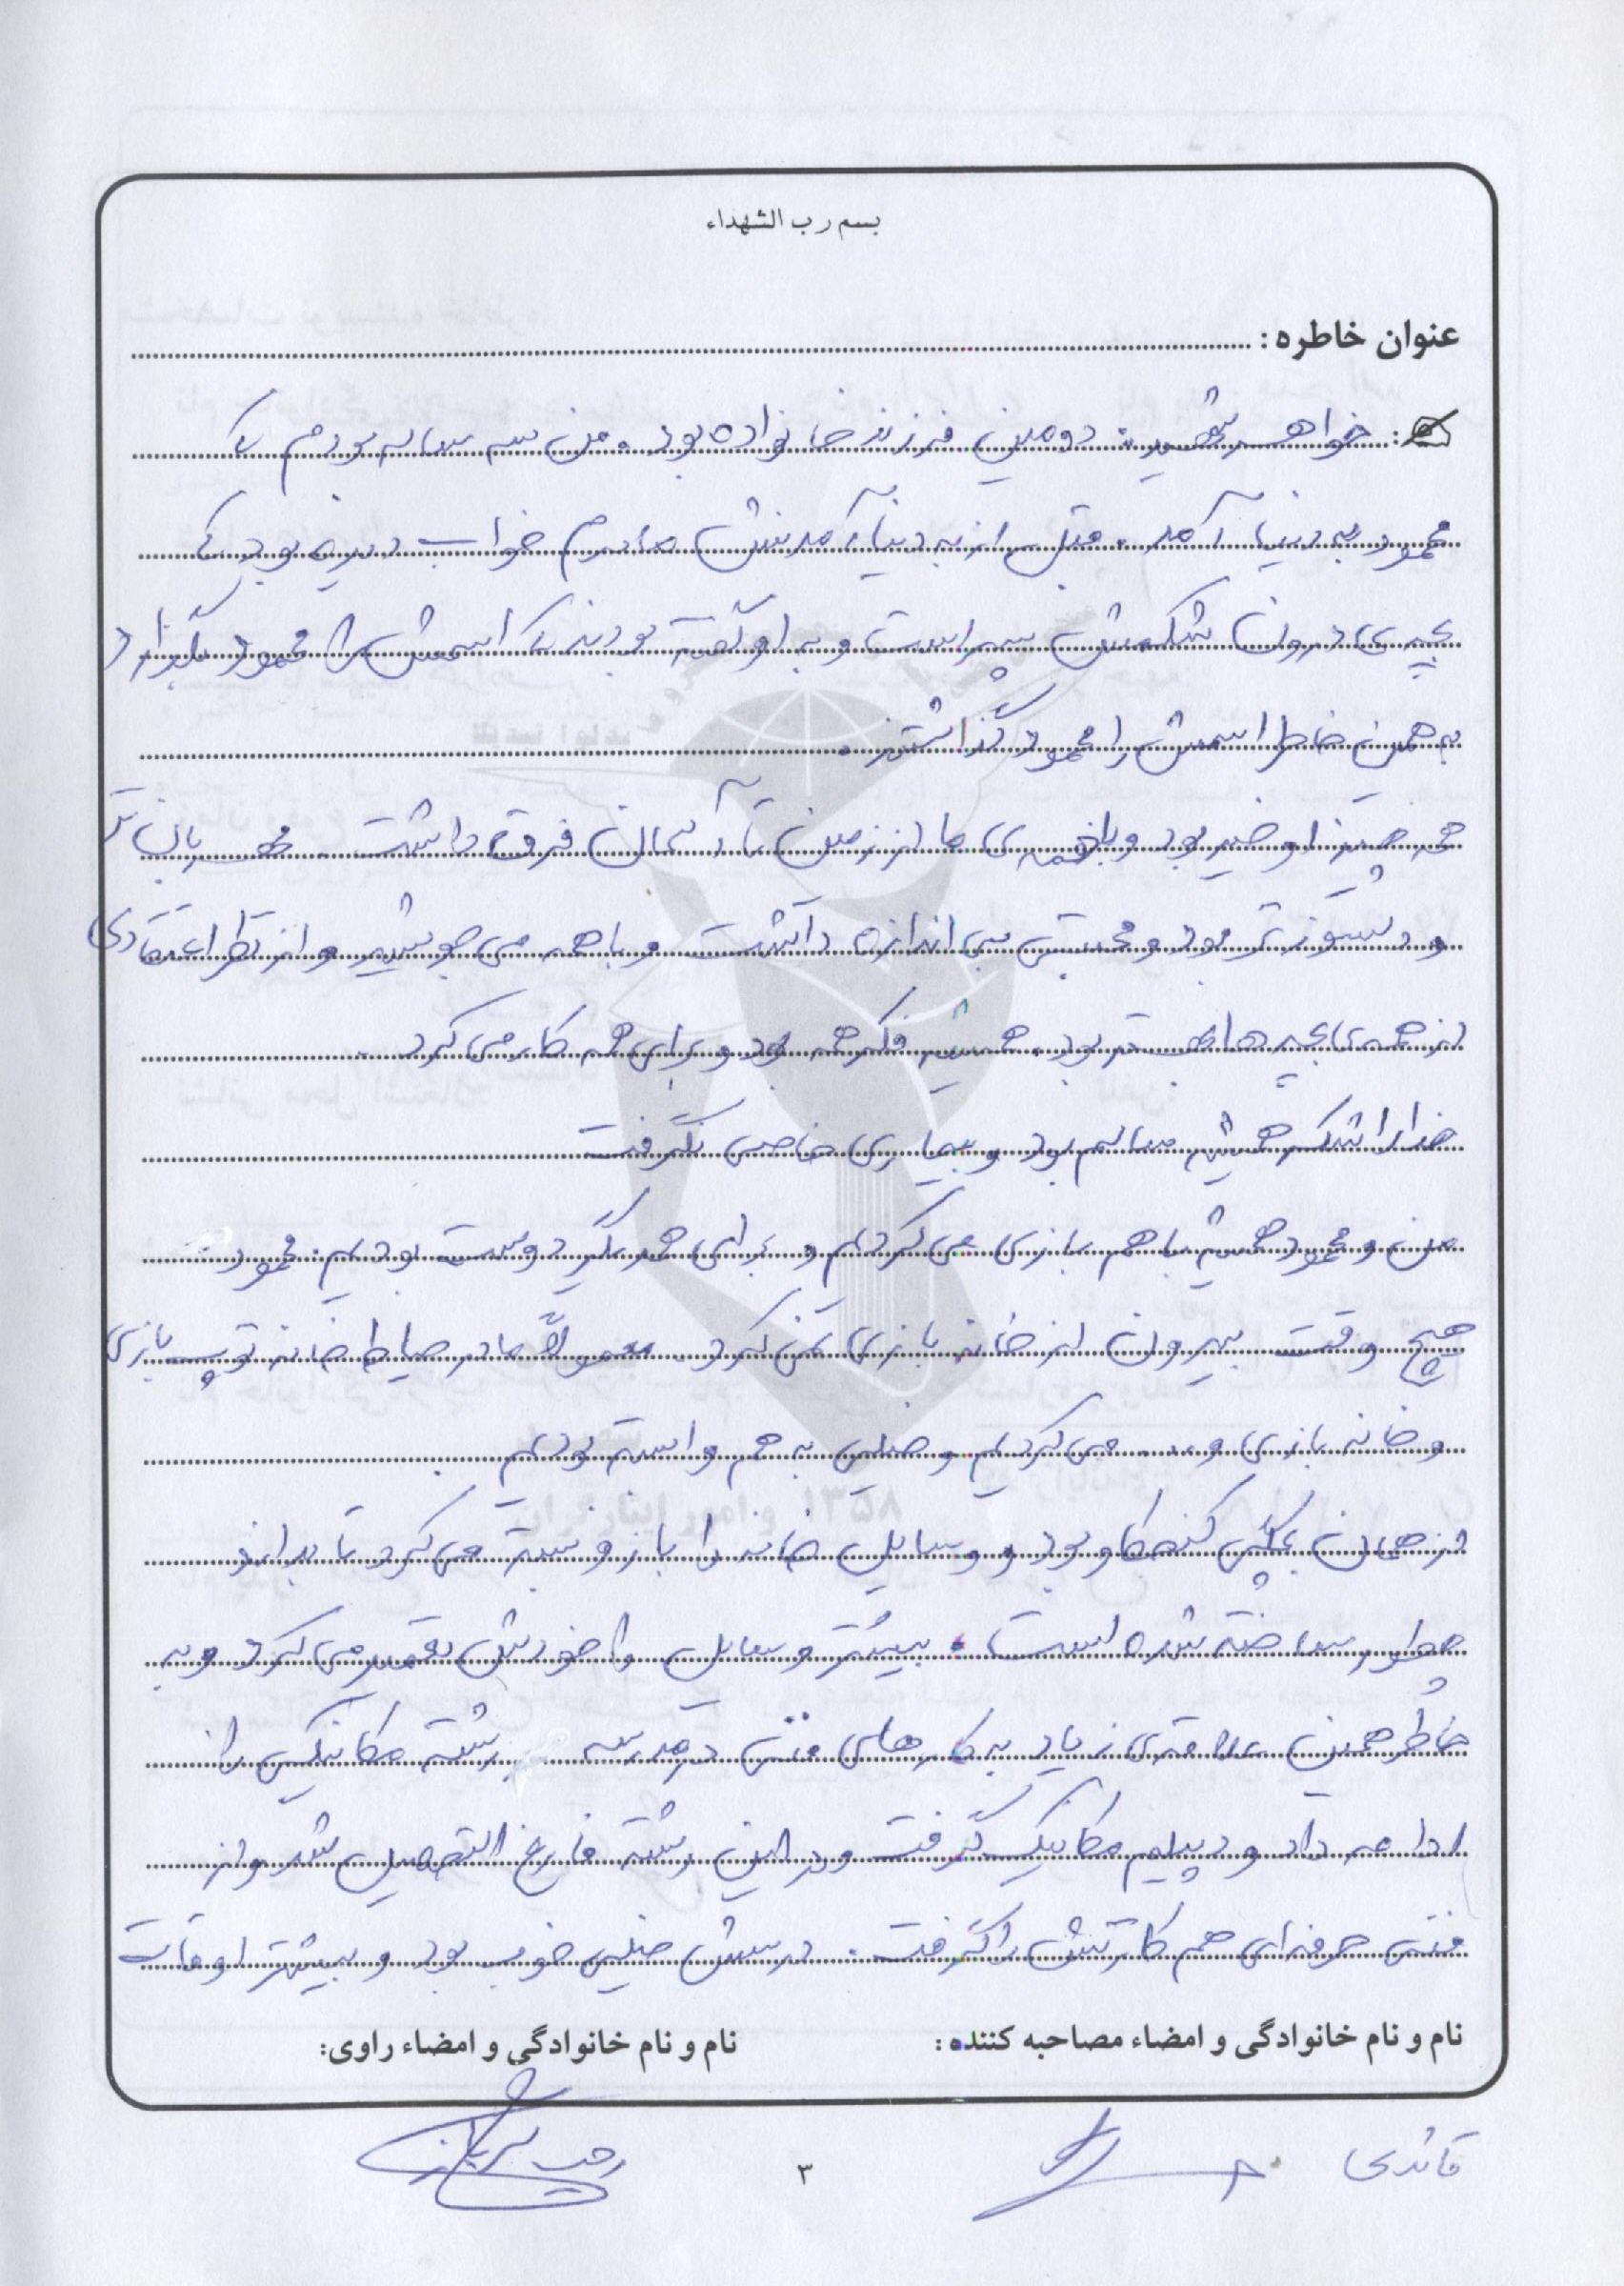 بسم رب الشهداء
عنوان خاطره:
خواهر شهید: دومین فرزند خانواده بود. من سه ساله بودم که
محمود به دنیا آمد. قبل از به دنیا آمدنش مادرم خواب دیده بود که
بچه‌ی درون شکمش پسر است و به او گفته بودند که اسمش را محمود بگذارد
به همین خاطر اسمش را محمود گذاشتند.
همه چیز او خیر بود و با همه‌ی ما از زمین تا آسمان فرق داشت. مهربان‌تر
و دلسوزتر بود و محبتش بی اندازه داشت و با همه می‌جوشید و از نظر اعتقادی
از همه‌ی بچه‌ها بهتر بود. همیشه فکر همه بود و برای همه کار می‌کرد.
خدا را شکر همیشه سالم بود و بیماری خاصی نگرفت
من و محمود همیشه با هم بازی می‌کردیم و برای همدیگر دوست بودیم. محمود
هیچ وقت بیرون از خانه بازی نمی‌کرد. معمولاً ما در حیاط خانه توپ بازی
و خانه بازی و ... می‌کردیم و خیلی به هم وابسته بودیم.
از همان بچگی کنجکاو بود و وسایل خانه را باز و بسته می‌کرد تا بداند
چطور ساخته شده است. بیشتر وسایل را خودش تعمیر می‌کرد و به
خاطر همین علاقه‌ی زیاد به کارهای فنی در مدرسه رشته مکانیکی را
ادامه داد و دیپلم مکانیک گرفت و در این رشته فارغ التحصیل شد و از
فنی حرفه‌ای هم کارتش را گرفت. درسش خیلی خوب بود و بیشتر اوقات
نام و نام خانوادگی و امضاء مصاحبه کننده:
نام و نام خانوادگی و امضاء راوی:
قائدی
۳